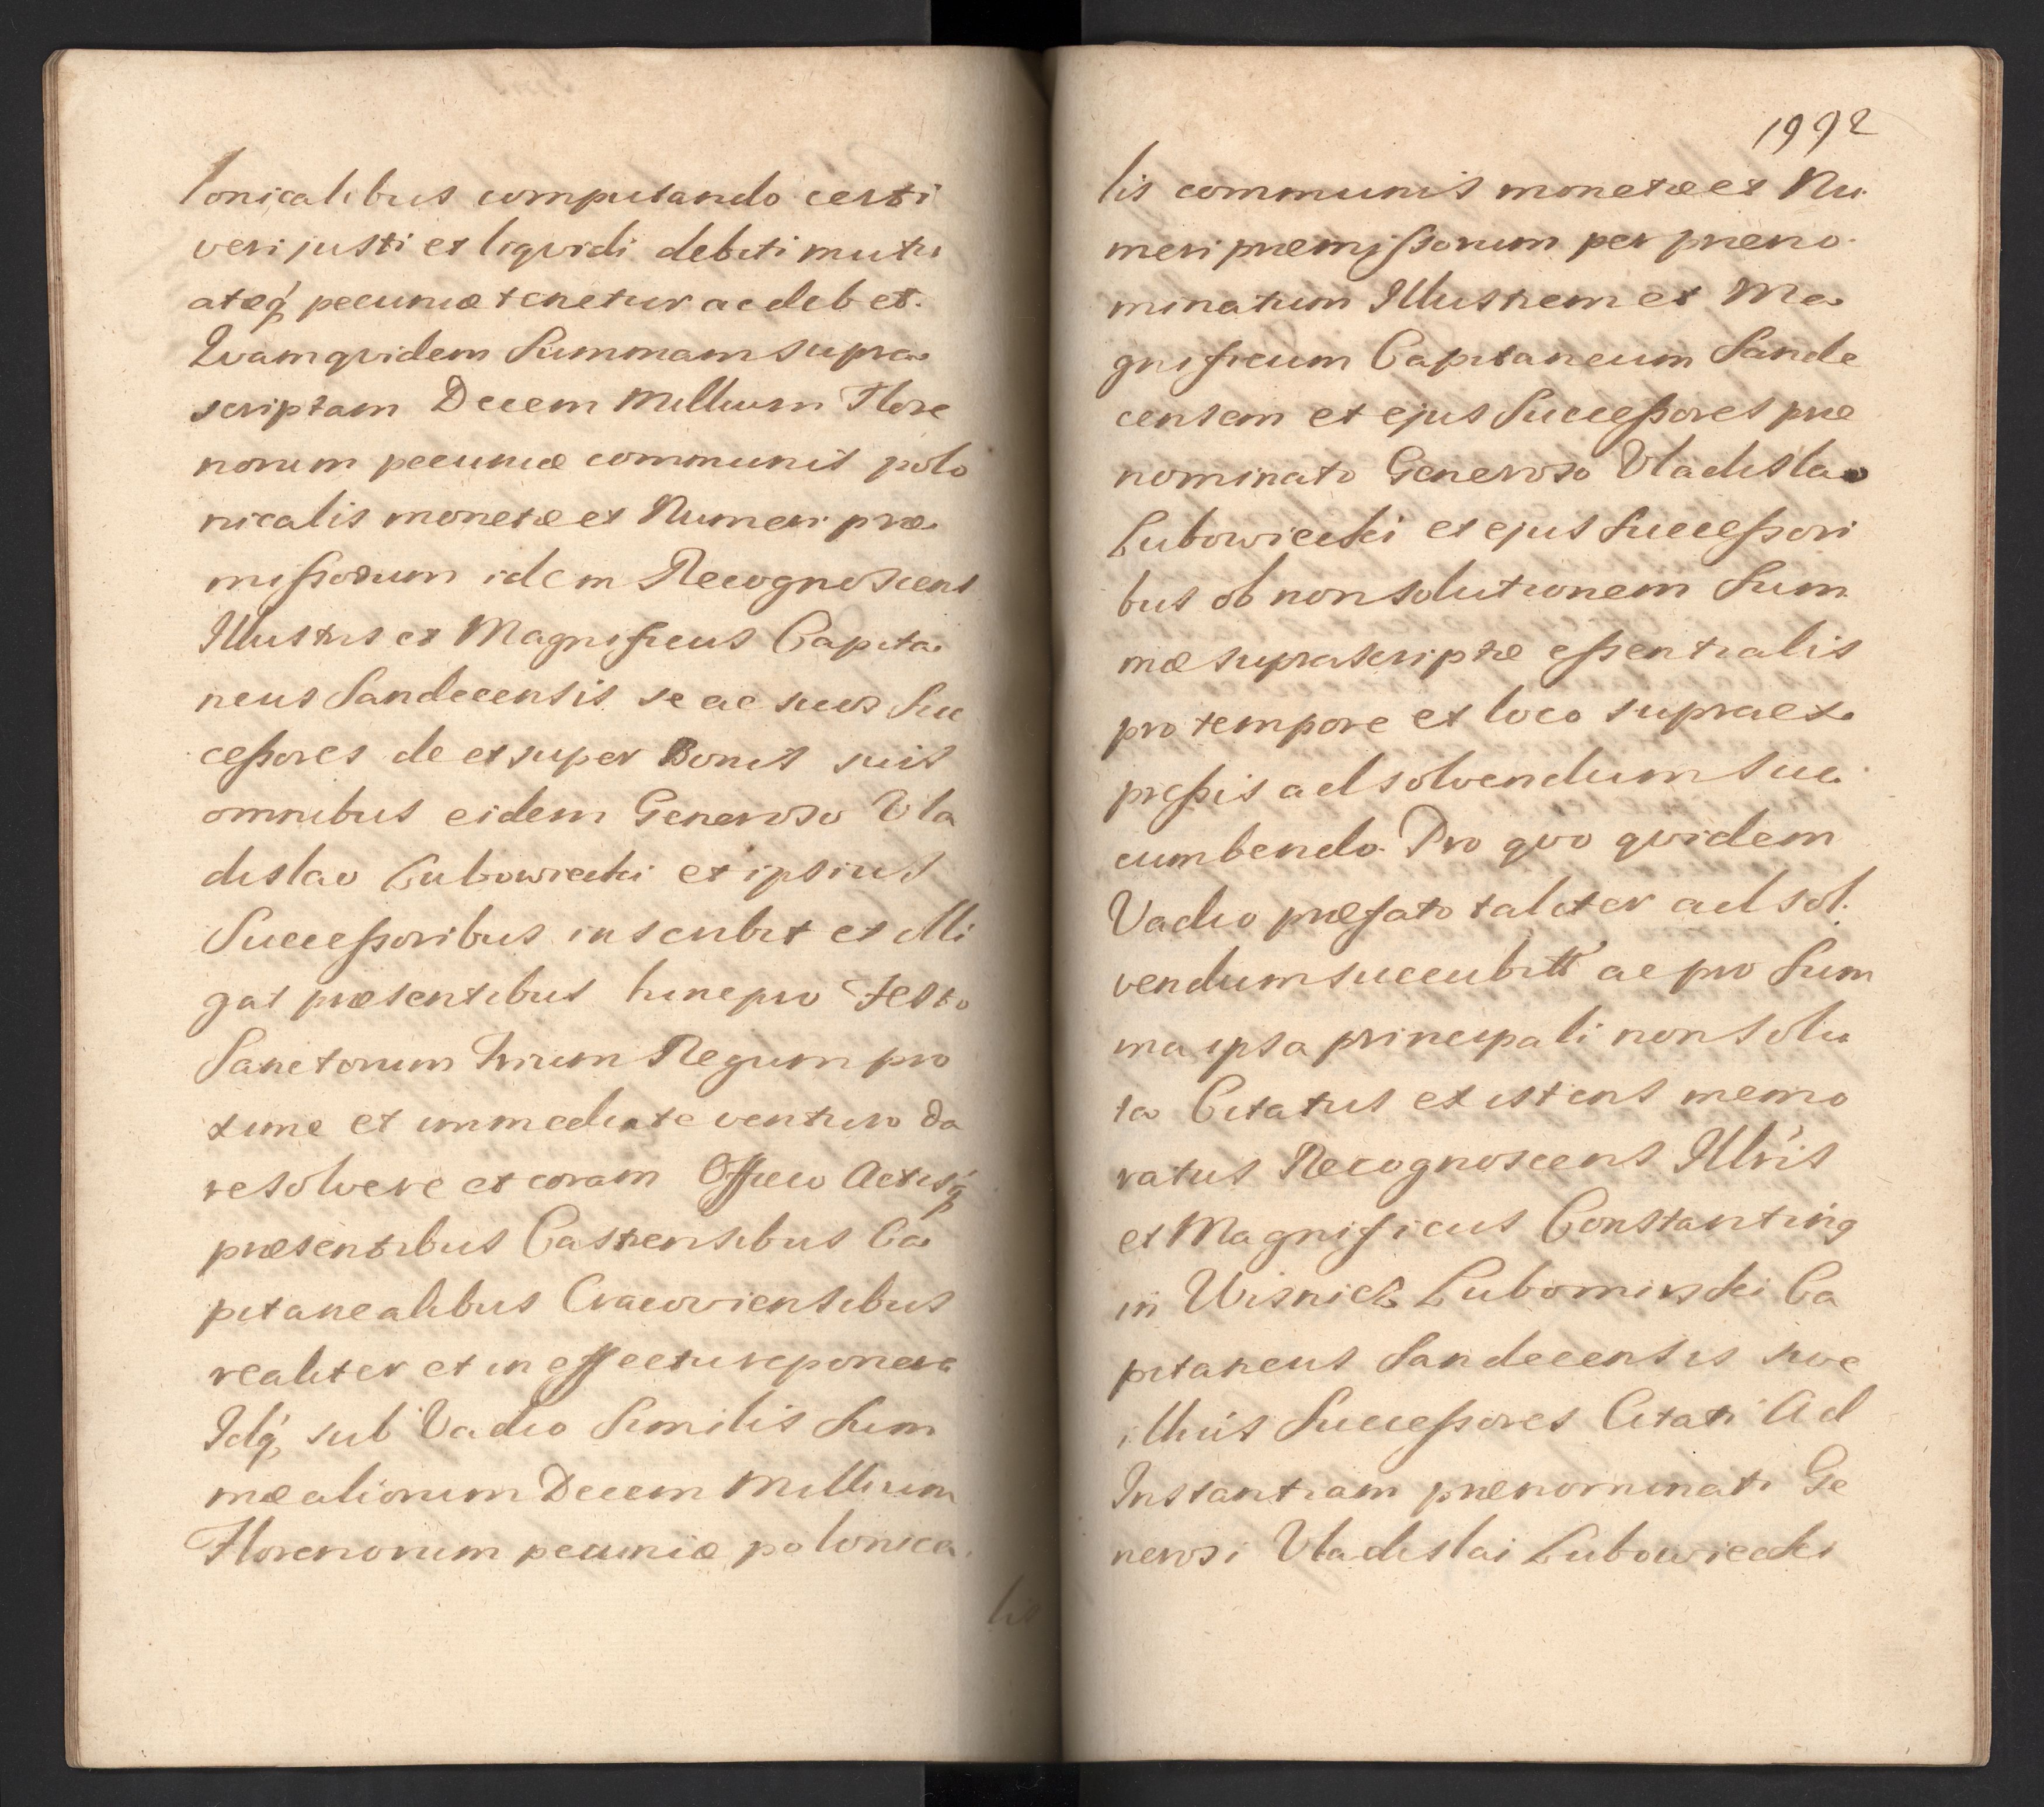 lonicalibus computando certi
veri justi et liqvidi debiti mutu
ateq́, pecuniæ tenetur ac debet.
Qvamqvidem Summam supra
scriptam Decem Millium Flore
norum pecuniæ communis polo
nicalis monetæ et Numeri præ
missorum idem Recognoscens
Illustris et Magnificus Capita
neus Sandecensis se ac suos Suc
cessores de et super Bonis suis
omnibus eidem Generoso Vla
dislao Lubowiecki et ipsius
Successoribus inscribit et illi
gat præsentibus hinc pro Festo
Sanctorum trium Regum pro
xime et immediate venturo da
re solvere et coram Officio Actisq́
præsentibus Castrensibus Ca
pitanealibus Cracoviensibus
realiter et in effectu reponere
Idq́, sub Vadio Similis Sum
mæ aliorum Decem Millium
Florenorum pecuniæ polonica
lis
1992
lis communis monetæ et Nu
meri præmissorum per præno
minatum Illustrem et Ma
gnificum Capitaneum Sande
censem et ejus Successores præ
nominato Generoso Vladislao
Lubowiecki et ejus Successori
bus ob non solutionem Sum
mæ suprascriptæ essentialis
pro tempore et loco supraex
pressis ad solvendum suc
cumbendo. Pro qvo qvidem
Vadio præfato taliter ad sol
vendum succubitt ac pro Sum
ma ipsa principali non solu
ta Citatus existens memo
ratus Recognoscens Illris
et Magnificus Constantinq
in Wisnicz Lubomirski Ca
pitaneus Sandecensis sive
illius Successores Citati Ad
Instantiam prænominati Ge
nerosi Vladislai Lubowiecki